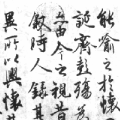 能喻之於懷
誕齊彭殤
由今之視昔
敘時人錄其
異所以興懷